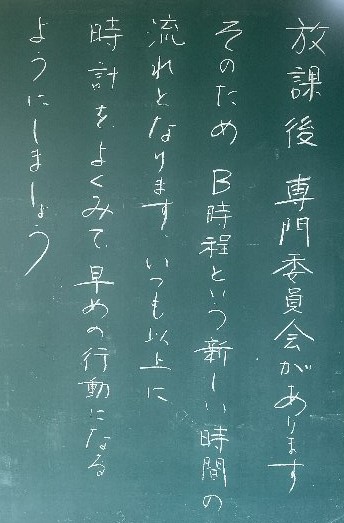 放課後 専門委員会があります
そのため B時程という新しい時間の
流れとなります、いつも以上に
時計をよくみて、早めの行動になる
ようにしましょう